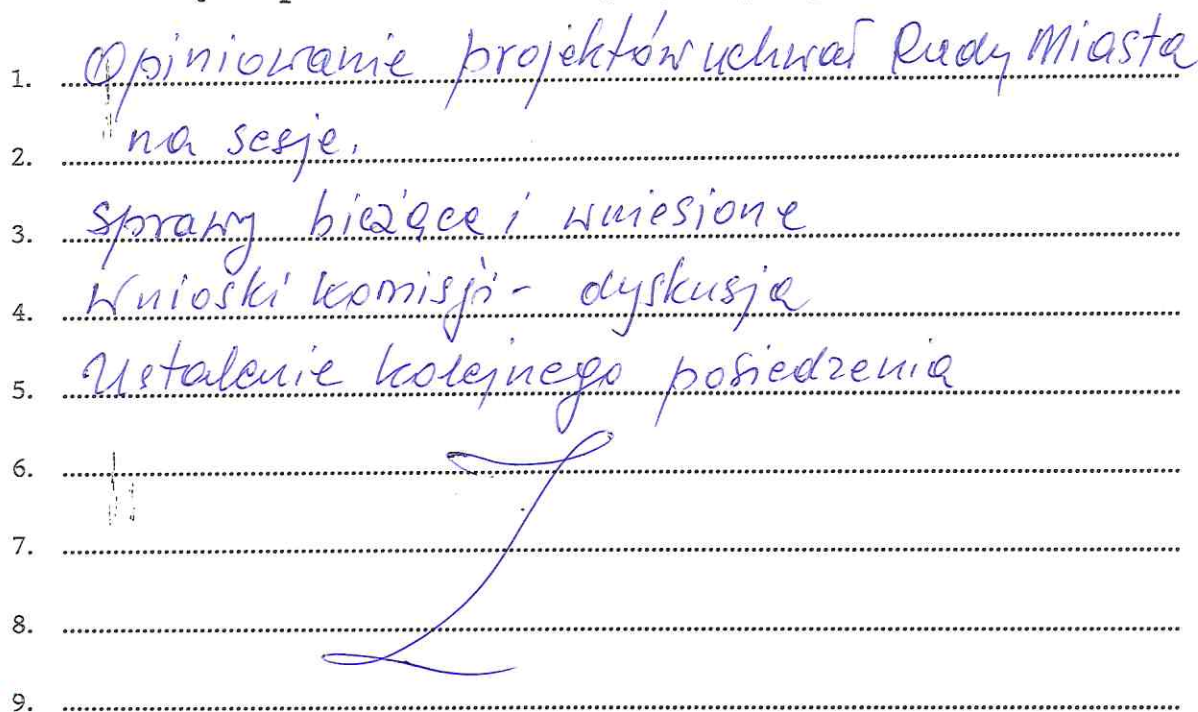 1. Opiniowanie projektów uchwał Rady Miasta
2. na sesję.
3. Sprawy bieżące i wniesione
4. Wnioski komisji - dyskusja
5. Ustalenie kolejnego posiedzenia
6.
7.
8.
9.